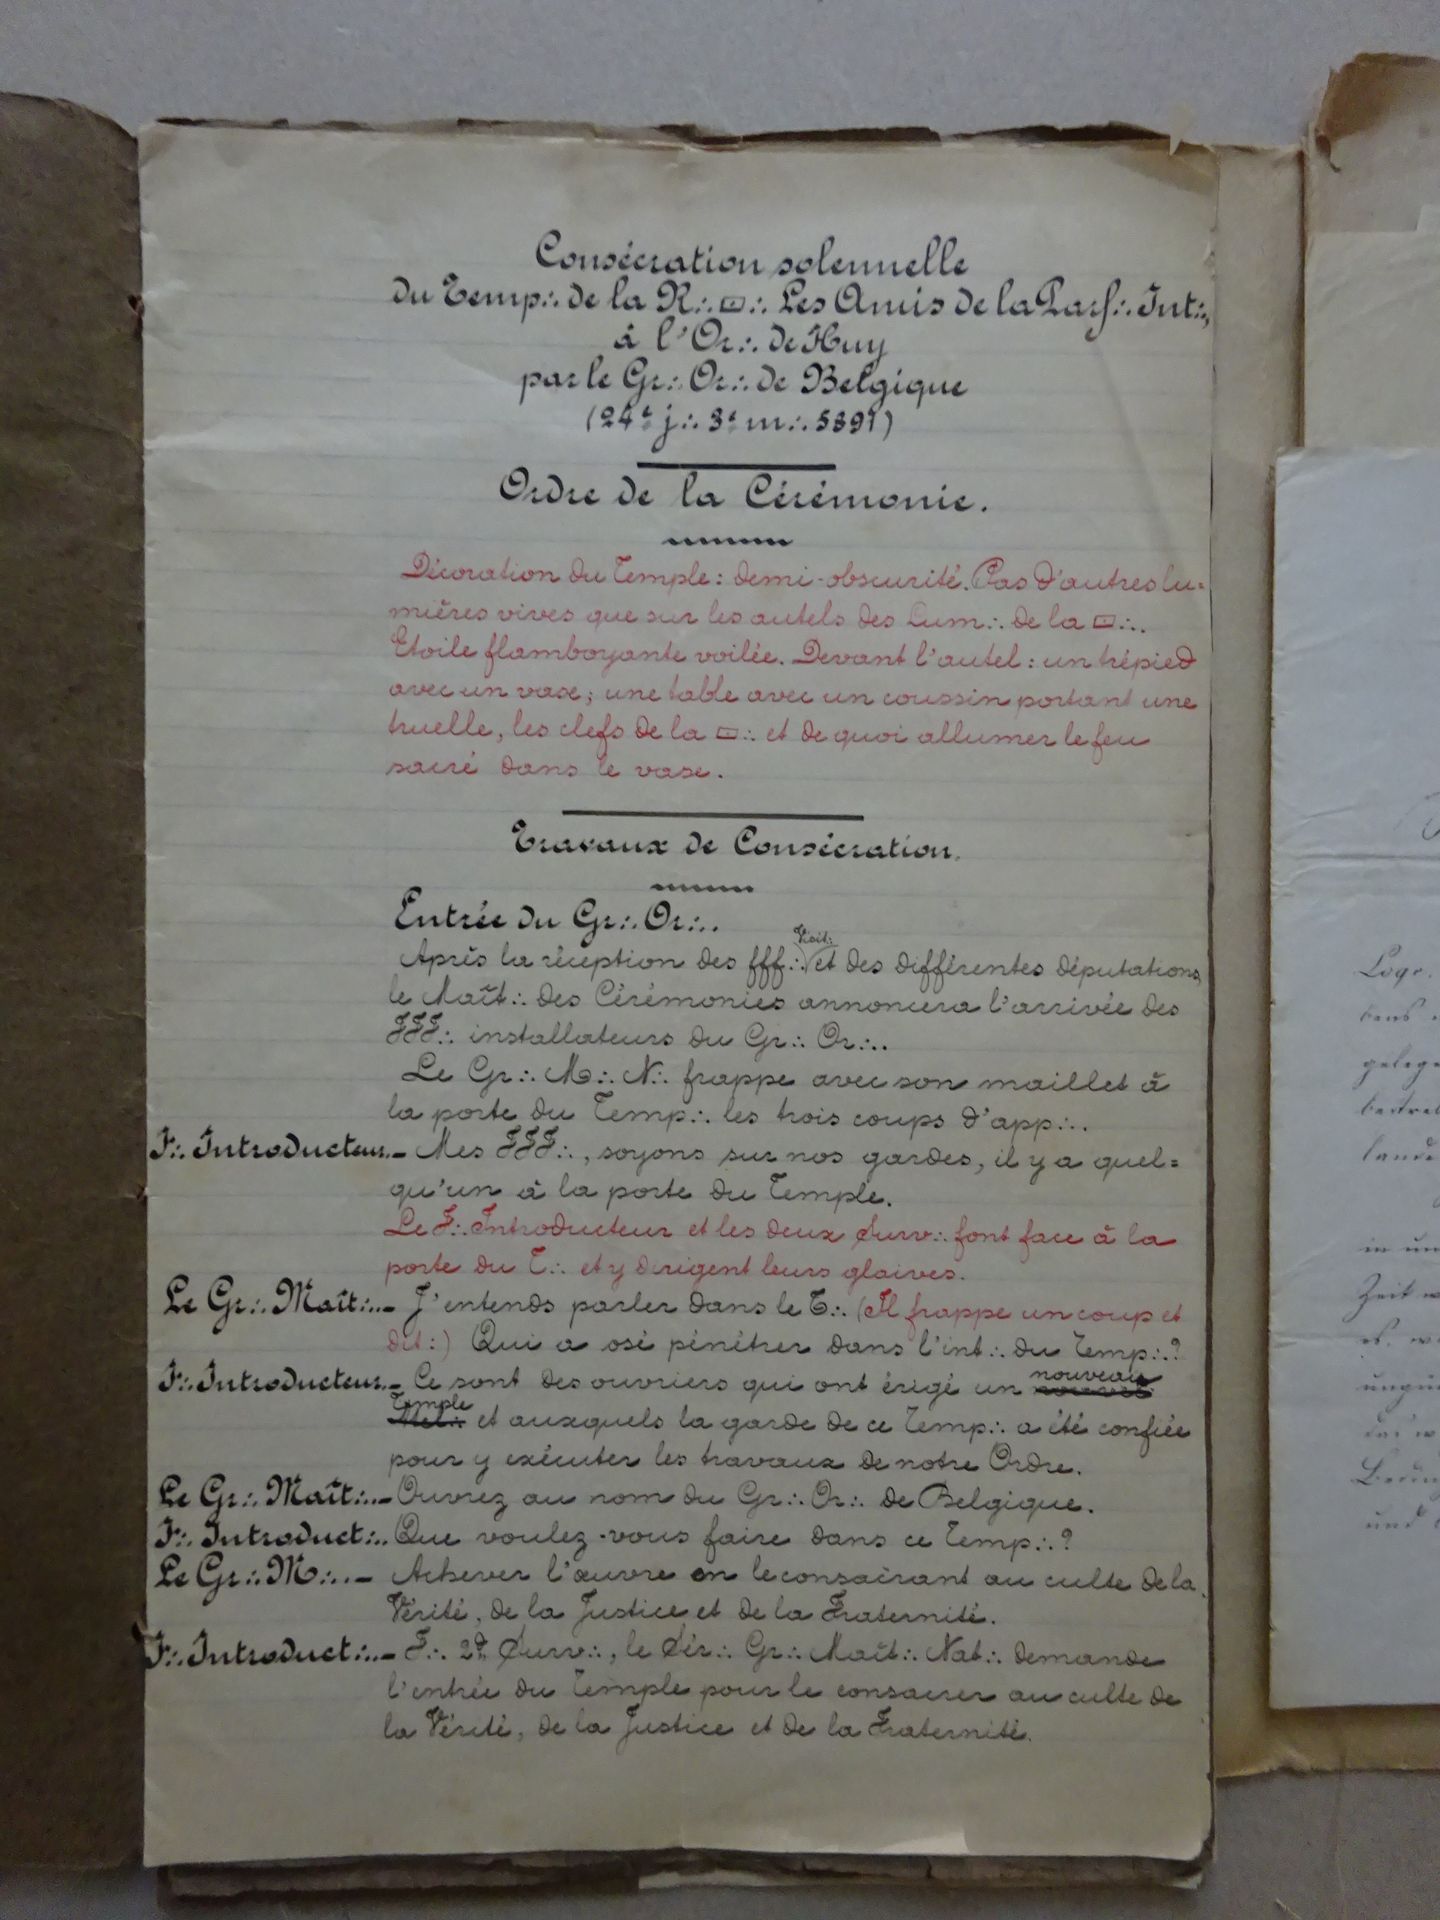 Consécration solennelle
du Temp∴ de la R∴ ▭∴ Les Amis de la Parf∴ Int∴,
à l'Or∴ de Huy
par le Gr∴ Or∴ de Belgique
(24e j∴ 3e m∴ 5891)
Ordre de la Cérémonie.
Décoration du Temple : demi-obscurité. Pas d'autres lu=
mières vives que sur les autels des Lum∴ de la ▭∴.
Etoile flamboyante voilée. Devant l'autel : un trépied
avec un vase ; une table avec un coussin portant une
truelle, les clefs de la ▭∴ et de quoi allumer le feu
sacré dans le vase.
Travaux de Consécration.
Entrée du Gr∴ Or∴.
Visit∴
Après la réception des fff∴ et des différentes députations,
le Maît∴ des Cérémonies annoncera l'arrivée des
FFF∴ installateurs du Gr∴ Or∴.
Le Gr∴ M∴ N∴ frappe avec son maillet à
la porte du Temp∴ les trois coups d'app∴.
F∴ Introducteur. – Mes FFF∴, soyons sur nos gardes, il y a quel=
qu'un à la porte du Temple.
Le F∴ Introducteur et les deux Surv∴ font face à la
porte du T∴ et y dirigent leurs glaives.
Le Gr∴ Maît∴. – J'entends parler dans le T∴ (Il frappe un coup et
dit :) Qui a osé pénétrer dans l'int∴ du Temp∴ ?
F∴ Introducteur. – Ce sont des ouvriers qui ont érigé un nouveau
Temple et auxquels la garde de ce Temp∴ a été confiée
pour y exécuter les travaux de notre Ordre.
Le Gr∴ Maît∴. – Ouvrez au nom du Gr∴ Or∴ de Belgique.
F∴ Introduct∴. Que voulez-vous faire dans ce Temp∴ ?
Le Gr∴ M∴. – Achever l'œuvre en le consacrant au culte de la
Vérité, de la Justice et de la Fraternité.
F∴ Introduct∴. – F∴ 2d Surv∴, le Sér∴ Gr∴ Maît∴ Nat∴ demande
l'entrée du Temple pour le consacrer au culte de
la Vérité, de la Justice et de la Fraternité.